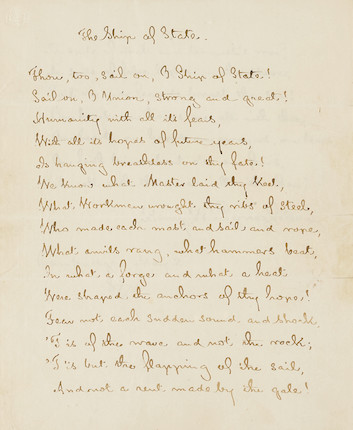 The Ship of State.
Thou, too, sail on, O Ship of State!
Sail on, O Union, strong and great!
Humanity with all its fears,
With all its hopes of future years,
Is hanging breathless on thy fate!
We know what Master laid thy Keel,
What Workmen wrought thy ribs of steel,
Who made each mast and sail and rope,
What anvils rang, what hammers beat,
In what a forge and what a heat
Were shaped the anchors of thy hope!
Fear not each sudden sound and shock
'T is of the wave and not the rock;
'T is but the flapping of the sail,
And not a rent made by the gale!